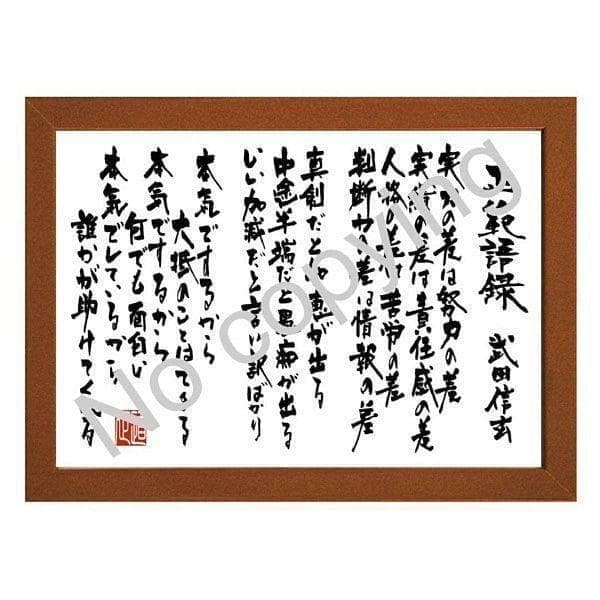 五範語録　武田信玄
実力の差は努力の差
実績の差は責任感の差
人格の差は苦労の差
判断力の差は情報の差
真剣だと知恵が出る
中途半端だと愚痴が出る
いい加減だと言い訳ばかり
本気でするから
大抵のことはできる
本気でするから
何でも面白い
本気でしているから
誰かが助けてくれる
No copying